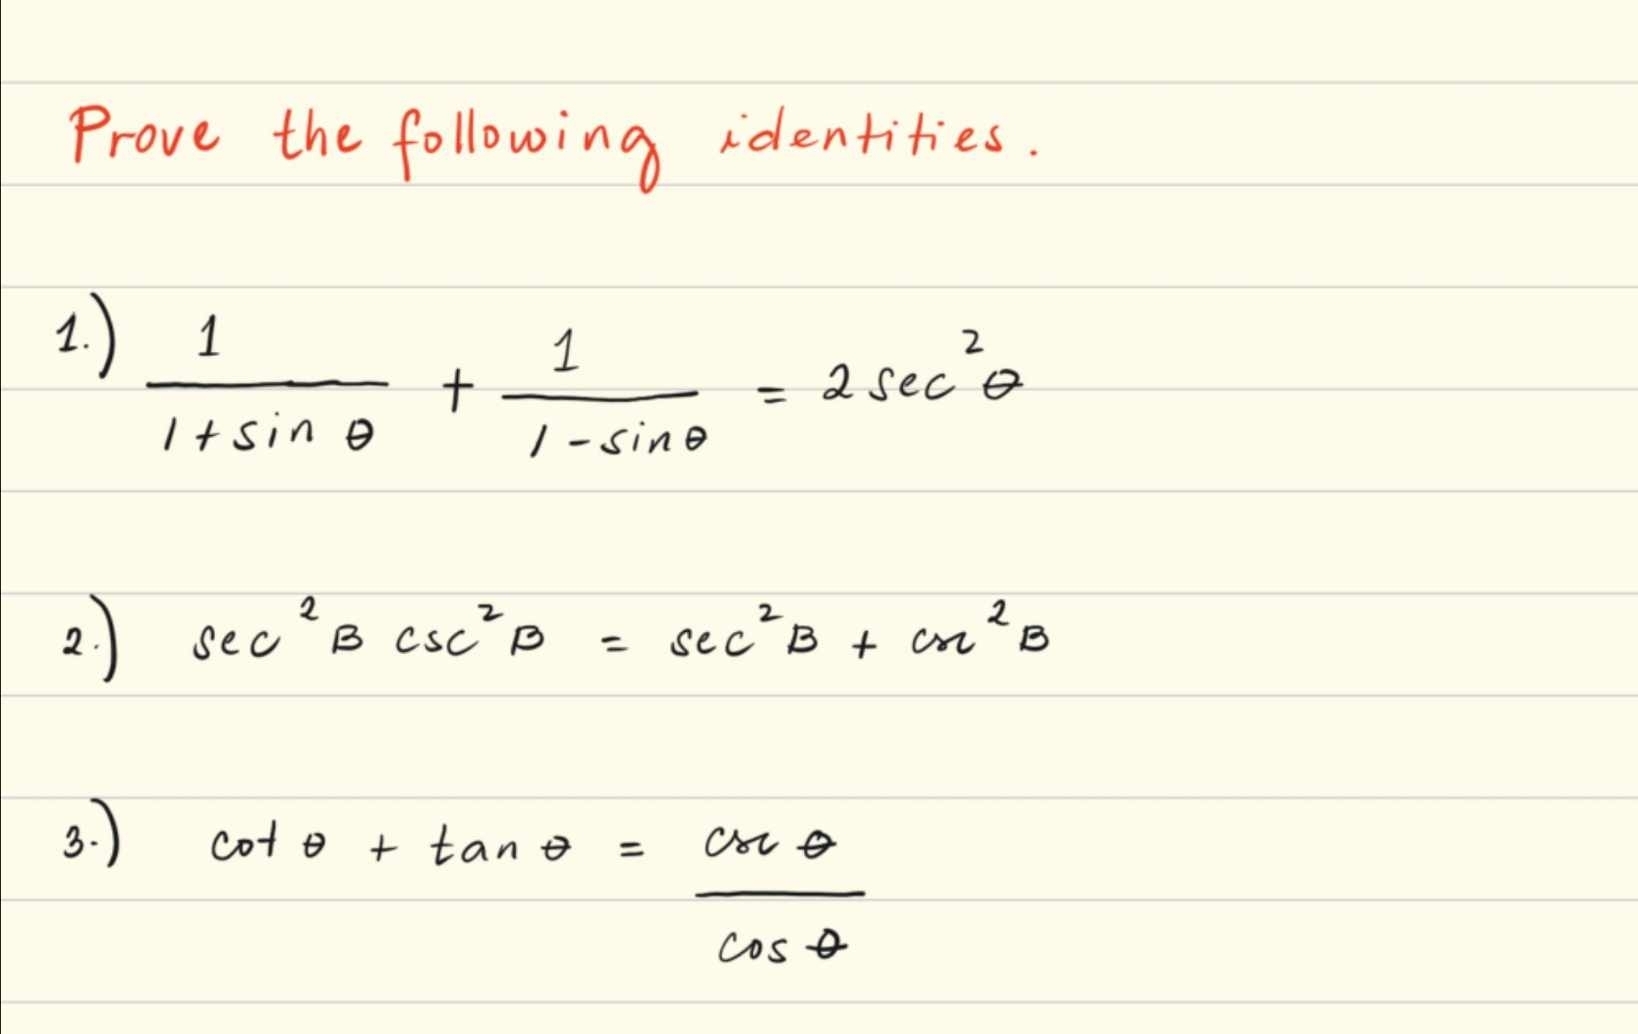 Prove the following identities.
1.) 1/(1+sin θ) + 1/(1-sinθ) = 2sec²θ
2.) sec²B csc²B = sec²B + csc²B
3.) cot θ + tan θ = csc θ/cos θ